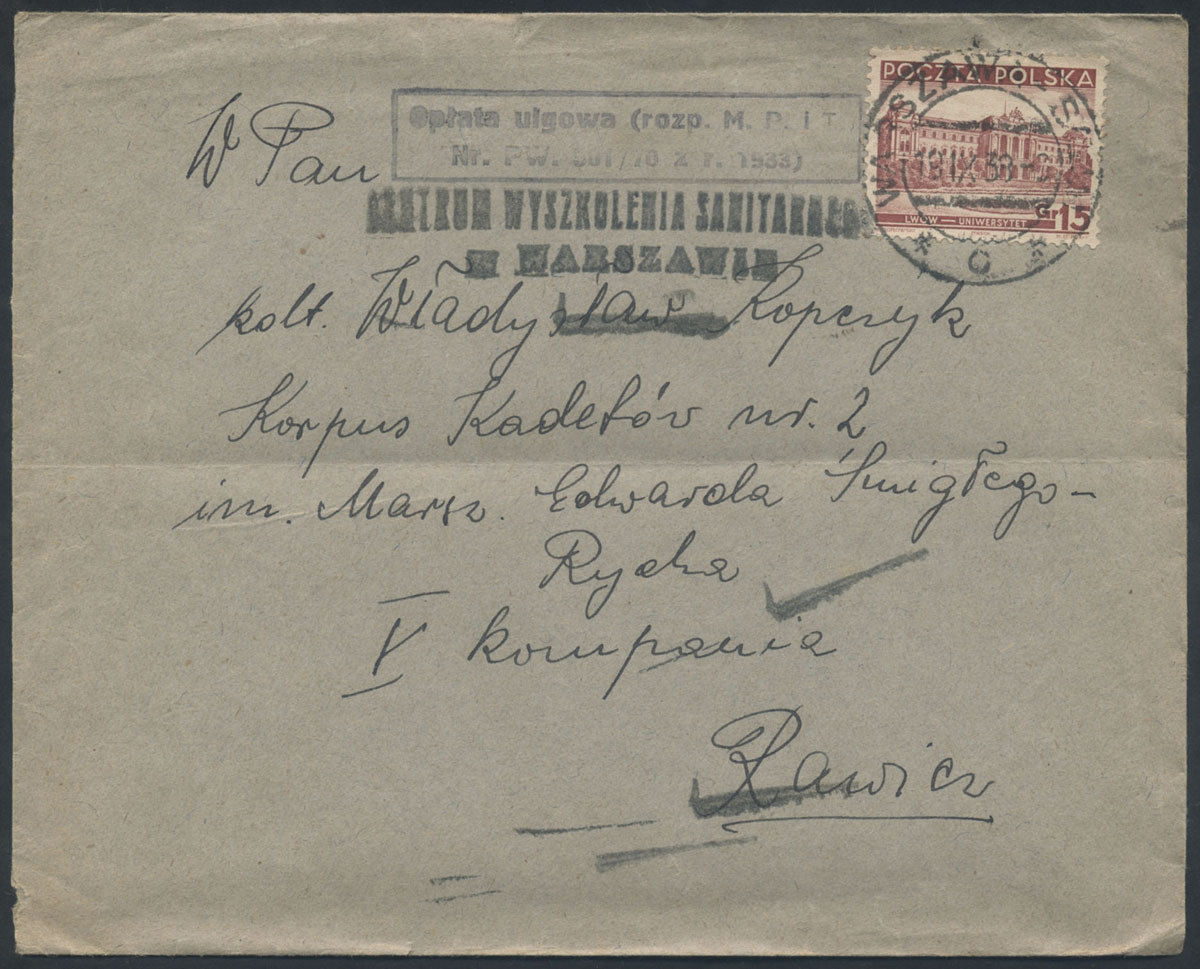 POCZTA POLSKA
LWÓW – UNIWERSYTET
Gr 15
WARSZAWA
19 IX 38
C
Opłata ulgowa (rozp. M. P. i T.
Nr. PW. 501/10 z r. 1933)
CENTRUM WYSZKOLENIA SANITARNEGO
W WARSZAWIE
W Pan
kdt. Władysław Kopczyk
Korpus Kadetów nr. 2
im. Marsz. Edwarda Śmigłego-
Rydza
V kompania
Rawicz